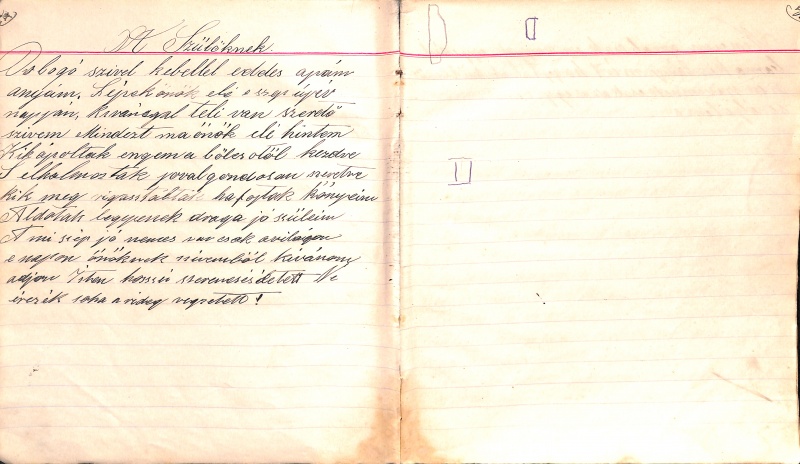 A Szülöknek.
Dobogó szivel kebellel eddes apám
anyám, Lépek önök elé e szep ujév
napján, Kivánsgal teli van szerető
szivem Mindezt ma önök elé hintem
Kik ápoltak engem a bölcsotöl kezdve
S elhalmosták joval gondosan nevetve
kik meg vigasztalták ha fojtak könyeim
Aldotak legyenek draga jo szüleim
A mi szép jó nemes van csak a világon
e napon önöknek szivemböl kivánom
adjon Isten hosszú szerencsés életett Ne
érezék soha a rideg vegzetett!